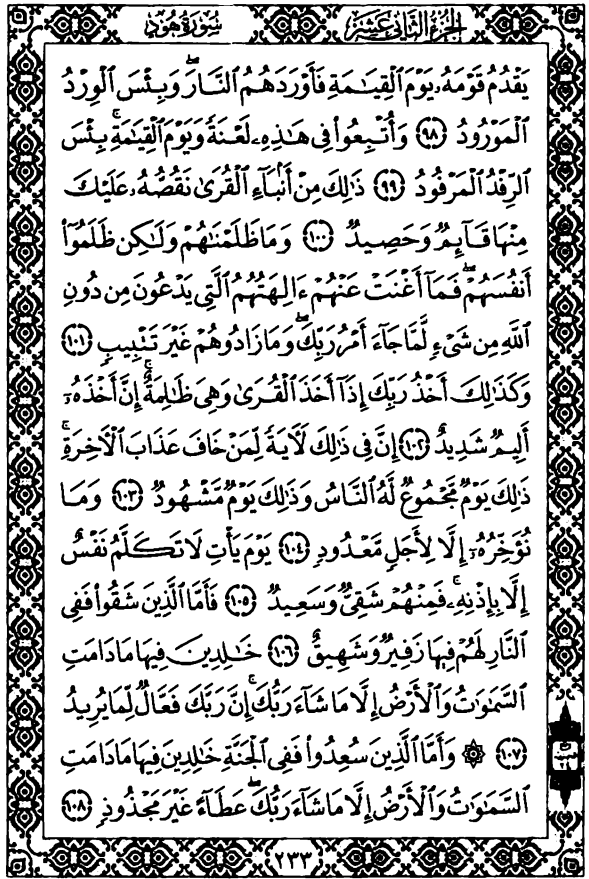 الجزء الثاني عشر
سورة هود
يَقْدُمُ قَوْمَهُۥ يَوْمَ ٱلْقِيَٰمَةِ فَأَوْرَدَهُمُ ٱلنَّارَۖ وَبِئْسَ ٱلْوِرْدُ
ٱلْمَوْرُودُ ٩٨ وَأُتْبِعُوا۟ فِى هَٰذِهِۦ لَعْنَةً وَيَوْمَ ٱلْقِيَٰمَةِۚ بِئْسَ
ٱلرِّفْدُ ٱلْمَرْفُودُ ٩٩ ذَٰلِكَ مِنْ أَنۢبَآءِ ٱلْقُرَىٰ نَقُصُّهُۥ عَلَيْكَ
مِنْهَا قَآئِمٌ وَحَصِيدٌ ١٠٠ وَمَا ظَلَمْنَٰهُمْ وَلَٰكِن ظَلَمُوٓا۟
أَنفُسَهُمْۖ فَمَآ أَغْنَتْ عَنْهُمْ ءَالِهَتُهُمُ ٱلَّتِى يَدْعُونَ مِن دُونِ
ٱللَّهِ مِن شَىْءٍ لَّمَّا جَآءَ أَمْرُ رَبِّكَۖ وَمَا زَادُوهُمْ غَيْرَ تَتْبِيبٍ ١٠١
وَكَذَٰلِكَ أَخْذُ رَبِّكَ إِذَآ أَخَذَ ٱلْقُرَىٰ وَهِىَ ظَٰلِمَةٌۚ إِنَّ أَخْذَهُۥٓ
أَلِيمٌ شَدِيدٌ ١٠٢ إِنَّ فِى ذَٰلِكَ لَءَايَةً لِّمَنْ خَافَ عَذَابَ ٱلْءَاخِرَةِۚ
ذَٰلِكَ يَوْمٌ مَّجْمُوعٌ لَّهُ ٱلنَّاسُ وَذَٰلِكَ يَوْمٌ مَّشْهُودٌ ١٠٣ وَمَا
نُؤَخِّرُهُۥٓ إِلَّا لِأَجَلٍ مَّعْدُودٍ ١٠٤ يَوْمَ يَأْتِ لَا تَكَلَّمُ نَفْسٌ
إِلَّا بِإِذْنِهِۦۚ فَمِنْهُمْ شَقِىٌّ وَسَعِيدٌ ١٠٥ فَأَمَّا ٱلَّذِينَ شَقُوا۟ فَفِى
ٱلنَّارِ لَهُمْ فِيهَا زَفِيرٌ وَشَهِيقٌ ١٠٦ خَٰلِدِينَ فِيهَا مَا دَامَتِ
ٱلسَّمَٰوَٰتُ وَٱلْأَرْضُ إِلَّا مَا شَآءَ رَبُّكَۚ إِنَّ رَبَّكَ فَعَّالٌ لِّمَا يُرِيدُ
١٠٧ ۞ وَأَمَّا ٱلَّذِينَ سُعِدُوا۟ فَفِى ٱلْجَنَّةِ خَٰلِدِينَ فِيهَا مَا دَامَتِ
ٱلسَّمَٰوَٰتُ وَٱلْأَرْضُ إِلَّا مَا شَآءَ رَبُّكَۖ عَطَآءً غَيْرَ مَجْذُوذٍ ١٠٨
٢٣٣